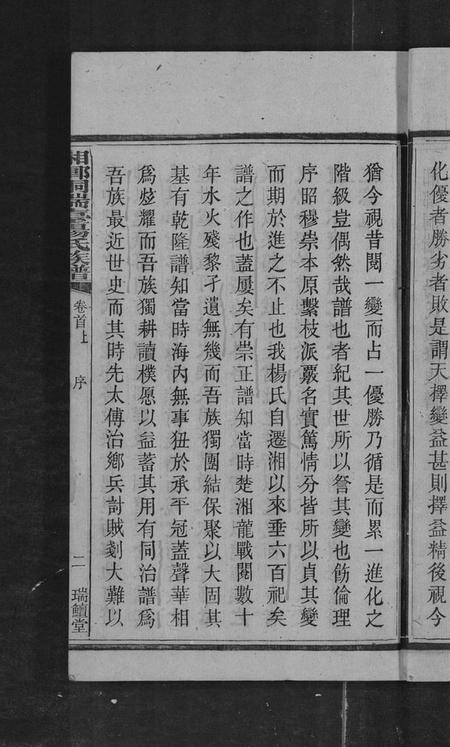 化優者勝劣者敗是謂天擇變益甚則擇益精後視今
猶今視昔閱一變而占一優勝乃循是而累一進化之
階級豈偶然哉譜也者紀其世所以督其變也飭倫理
序昭穆崇本原繫枝派覈名實篤情分皆所以貞其變
而期於進之不止也我楊氏自遷湘以來垂六百祀矣
譜之作也蓋屢矣有崇正譜知當時楚湘龍戰閱數十
年水火殘黎孑遺無幾而吾族獨團結保聚以大固其
基有乾隆譜知當時海內無事狃於承平冠蓋聲華相
為炫耀而吾族獨耕讀樸愿以益蓄其用有同治譜為
吾族最近世史而其時先太傅治鄉兵討賊剗大難以
湘鄉洞瑞亭楊氏族譜
卷首上
序
二
瑞饘堂